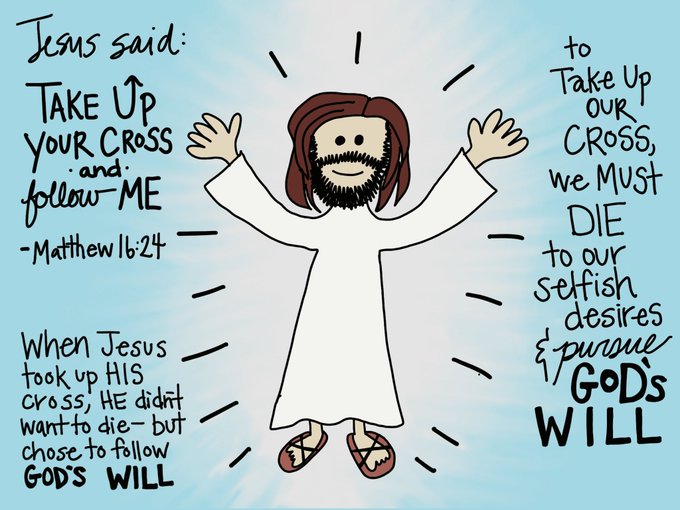 Jesus said:
TAKE UP
YOUR CROSS
·and·
follow ME
-Matthew 16:24
When Jesus
took up HIS
cross, HE didn't
want to die- but
chose to follow
GOD'S WILL
to
Take Up
OUR
CROSS,
we MUST
DIE
to our
selfish
desires
& pursue
GOD'S
WILL